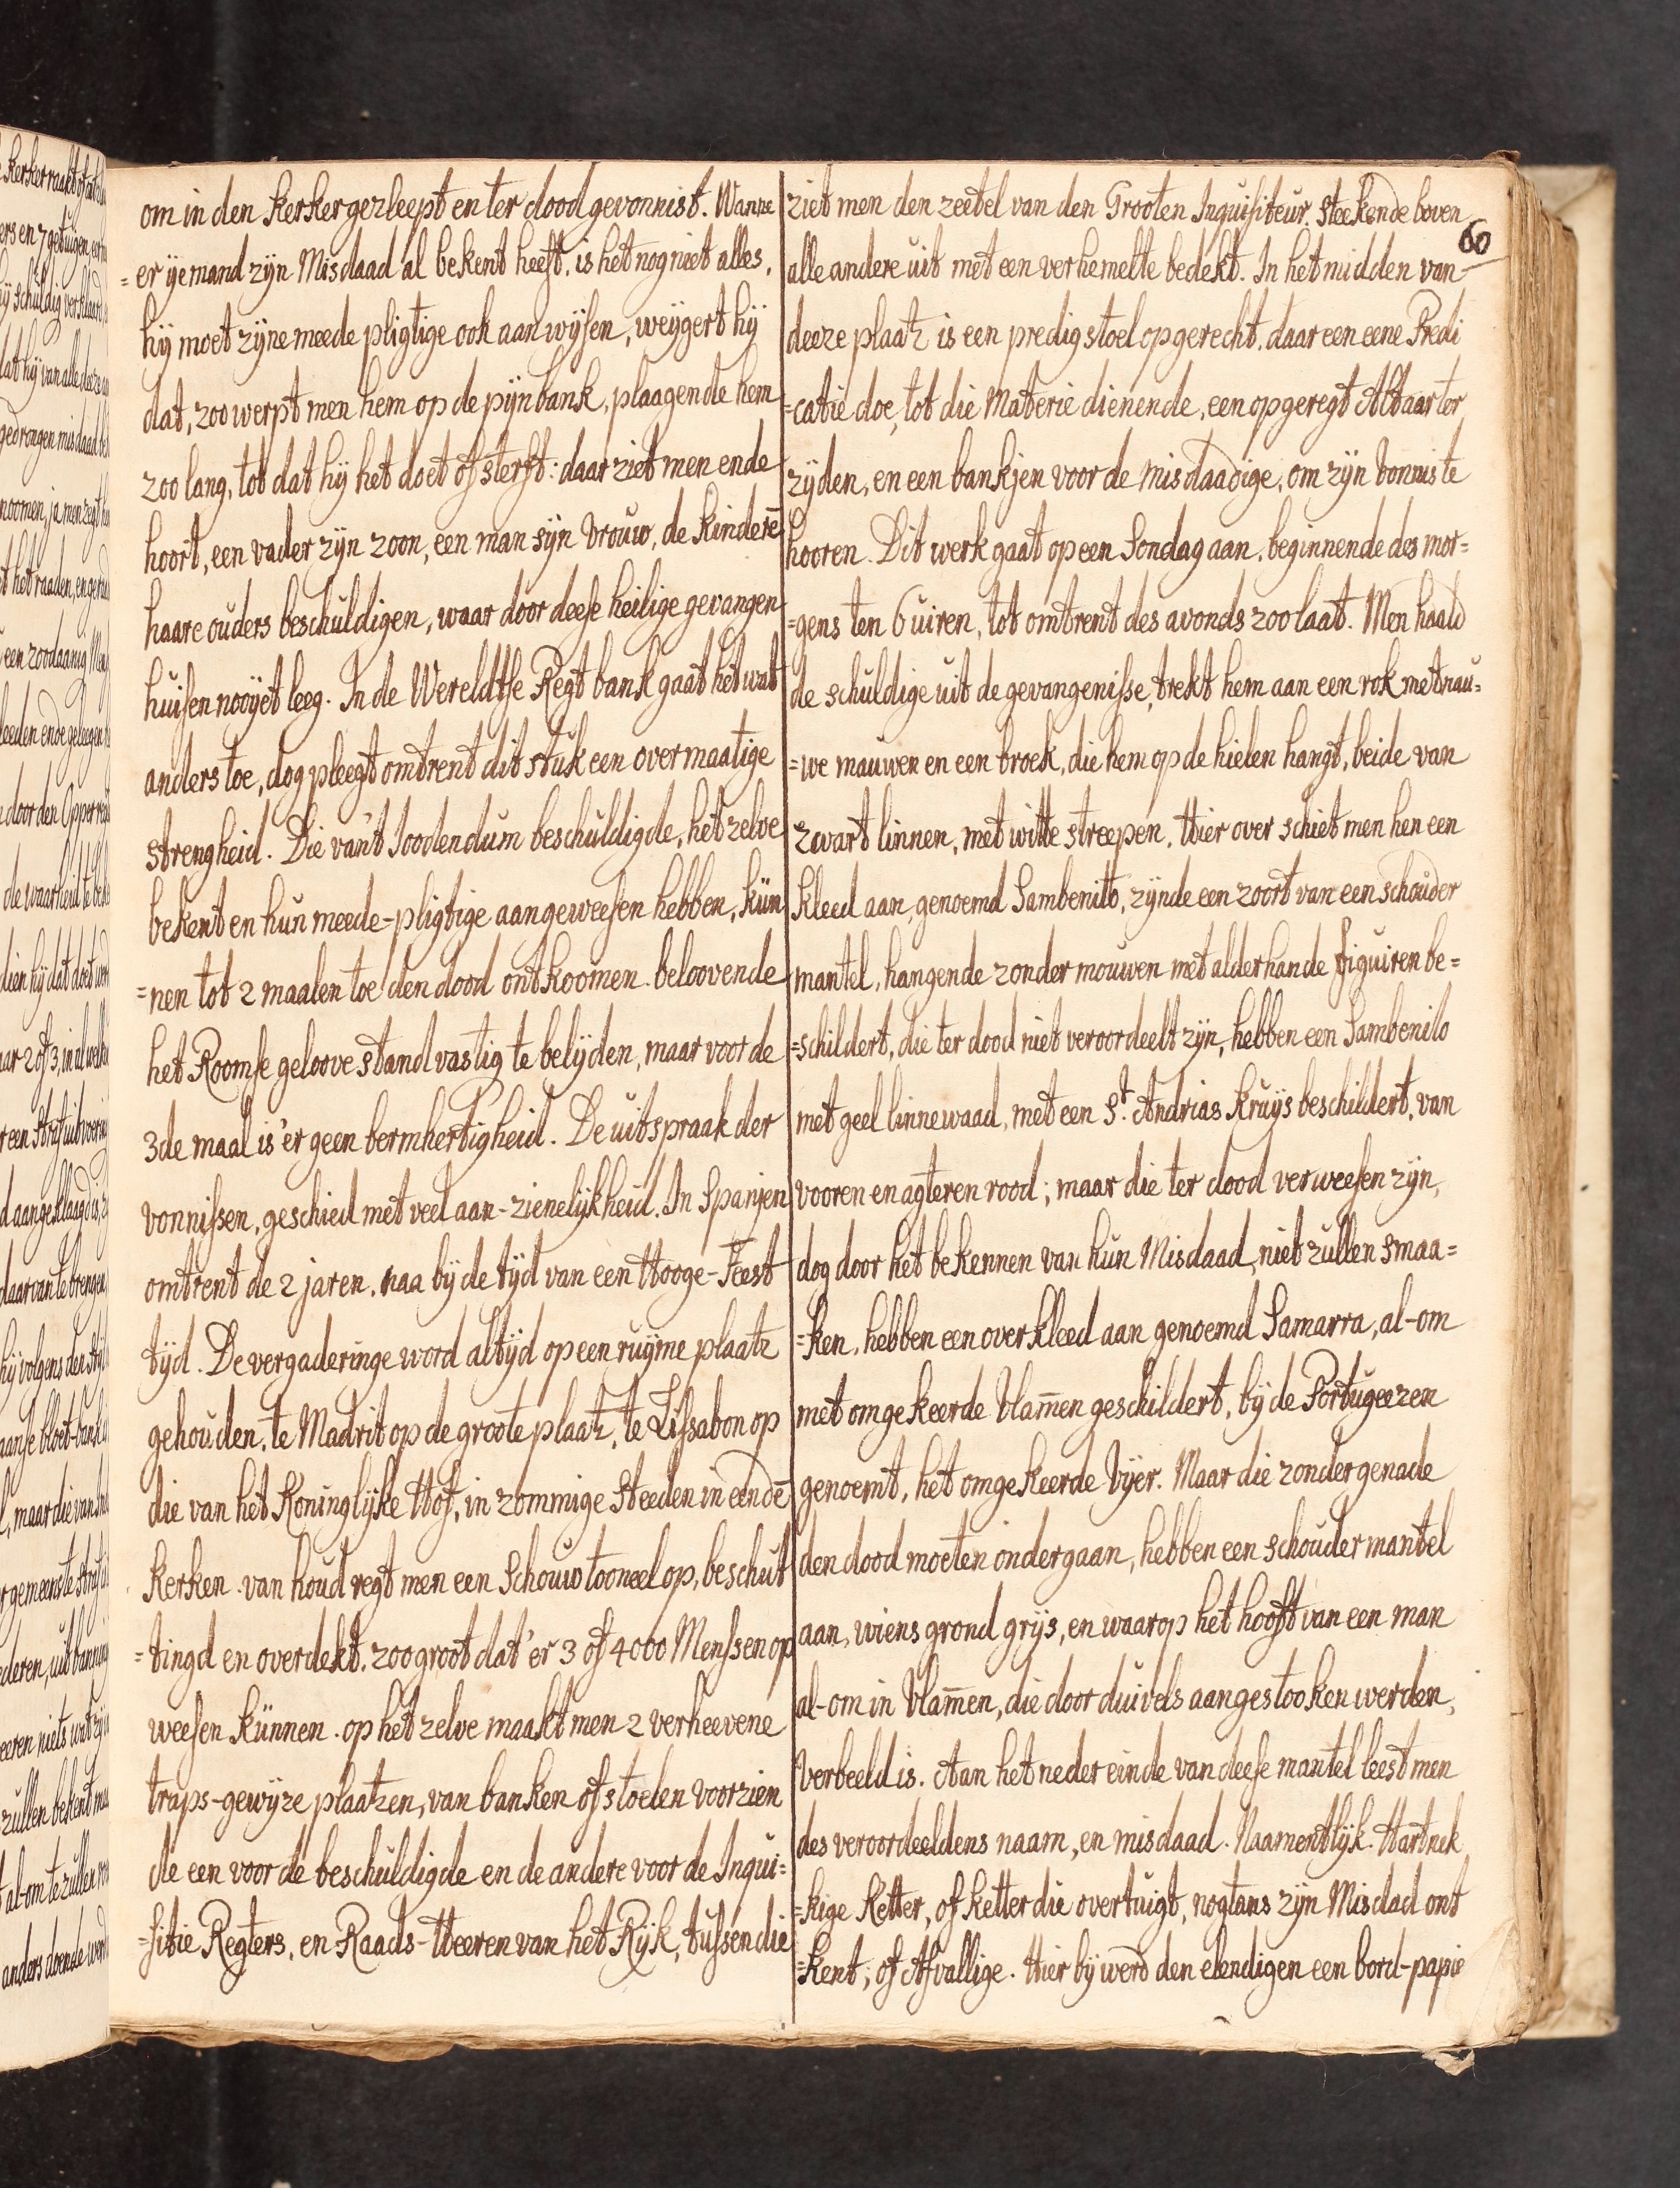 om in den kerker gezleept en ter dood gevonnist. Wanne
=er yemand zyn Misdaad al bekent heeft, is het nog niet alles,
hij moet zijne meede pligtige ook aanwijsen, weijgert hij
dat, zoo werpt men hem op de pijnbank, plaagende hem
zoo lang, tot dat hij het doet of sterft: daar ziet men ende
hoort, een vader zijn zoon, een man sijn Vrouw, de Kinderē
haare ouders beschuldigen, waar door deese heilige gevangen
huisen nooijet leeg. In de Wereldtse Regt bank gaat het wat
anders toe, dog pleegt omtrent dit stuk een overmaatige
strengheid. Die van't Joodendum beschuldigde, het zelve
bekent en hun meede-pligtige aangeweesen hebben, kun
=nen tot 2 maalen toe den dood ontkoomen. beloovende
het Roomse geloove standvastig te belijden, maar voor de
3de maal is 'er geen bermhertigheid. De uitspraak der
vonnissen, geschied met veel aan-zienelijkheid. In Spanjen
omtrent de 2 jaren. naa bij de tijd van een Hooge-Feest
tijd. De vergaderinge word altijd op een ruijme plaatz
gehouden, te Madrit op de groote plaatz, te Lissabon op
die van het Koninglijke Hof, in zommige Steeden in eendē
Kerken. van houd regt men een Schouwtooneel op, beschut
=tingd en overdekt. zoo groot dat 'er 3 of 4000 Menssen op
weesen kunnen. op het zelve maakt men 2 verheevene
traps-gewijze plaatzen, van banken of stoelen voorzien
de een voor de beschuldigde en de andere voor de Inqui=
=sitie Regters, en Raads-Heeren van het Rijk, tussen die
60
ziet men den zeetel van den Grooten Inquisiteur. Steekende boven
alle andere uit met een verhemelte bedekt. In het midden van
deeze plaatz is een predigstoel opgerecht, daar een eene Predi
=catie doe, tot die Materie dienende, een opgeregt Altaar ter
zijden, en een bankjen voor de misdaadige, om zijn Vonnis te
hooren. Dit werk gaat op een Sondag aan, beginnende des mor=
=gens ten 6 uiren, tot omtrent des avonds zoo laat. Men haald
de schuldige uit de gevangenisse, trekt hem aan een rok met nau=
=we mauwen en een broek, die hem op de hielen hangt, beide van
zwart linnen, met witte streepen. Hier over schiet men hen een
kleed aan, genoemd Sambenito, zijnde een zoort van een schouder
mantel, hangende zonder mouwen met alderhande figuiren be=
=schildert, die ter dood niet veroordeelt zijn, hebben een Sambenito
met geel linnewaad, met een St. Andrias Kruijs beschildert, van
vooren en agteren rood; maar die ter dood verweesen zijn,
dog door het bekennen van hun Misdaad, niet zullen smaa=
=ken, hebben een overkleed aan genoemd Samarra, al-om
met omgekeerde Vlam̄en geschildert, bij de Portugeezen
genoemt, het omgekeerde Vijer. Maar die zonder genade
den dood moeten ondergaan, hebben een schouder mantel
aan, wiens grond grijs, en waarop het hooft van een man
al-om in Vlam̄en, die door duivels aangestooken werden,
Verbeeld is. Aan het neder einde van deese mantel leest men
des veroordeeldens naam, en misdaad. Naamentlijk. Hartnek
=kige Ketter, of ketter die overtuigt, nogtans zijn Misdad ont
=kent; of Afvallige. Hier bij werd den elendigen een bord-papie